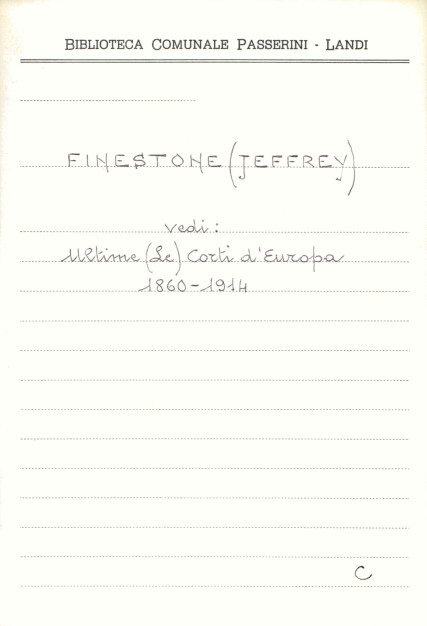 BIBLIOTECA COMUNALE PASSERINI - LANDI
FINESTONE (JEFFREY)
vedi:
Ultime (Le) Corti d'Europa
1860-1914
C